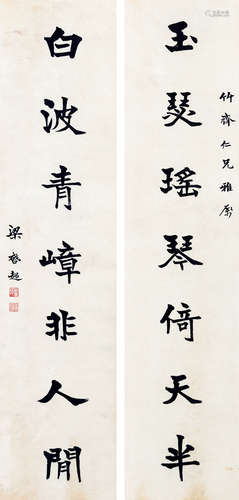 竹齋仁兄雅屬
玉瑟瑤琴倚天半
白波青嶂非人間
梁啓超